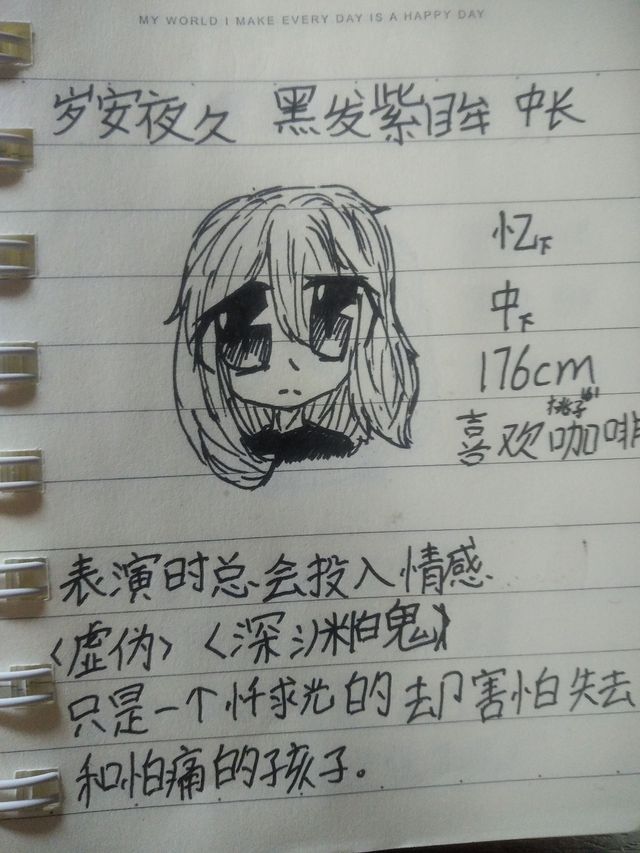 MY WORLD I MAKE EVERY DAY IS A HAPPY DAY
岁安夜久 黑发紫眸 中长
忆下
中下
176cm
喜欢咖啡
表演时总会投入情感
〈虚伪〉〈深 怕鬼〉
只是一个 求光的却害怕失去
和怕痛的孩子。